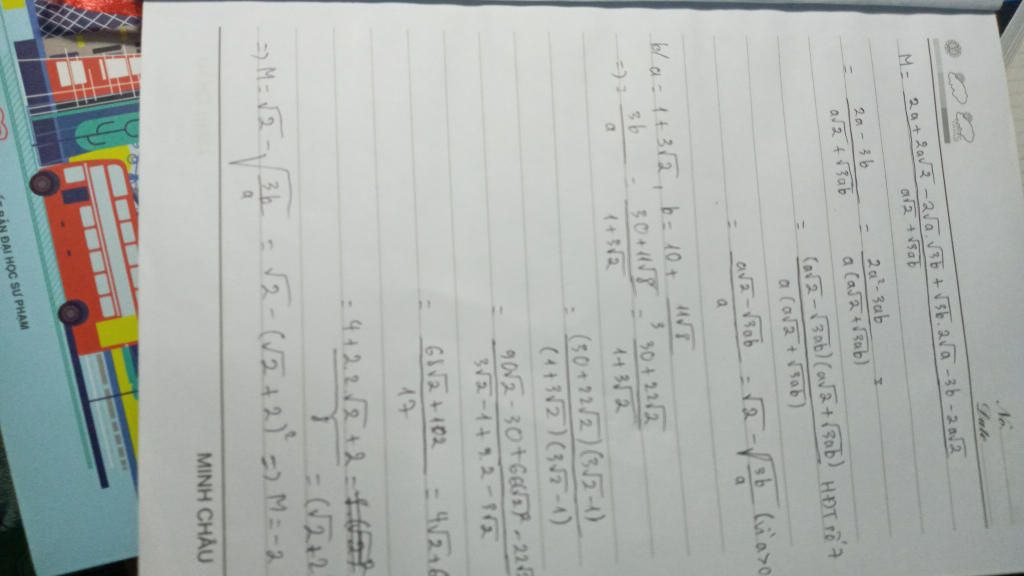 No:
Date
M = 2a + 2a√2 - 2√a.√3b + √3b.2√a - 3b - 2a√2 / a√2 + √3ab
= 2a - 3b / a√2 + √3ab = 2a² - 3ab / a(a√2 + √3ab) =
= (a√2 - √3ab)(a√2 + √3ab) / a(a√2 + √3ab) HĐT số 7
= a√2 - √3ab / a = √2 - √(3b/a) (vì a>0
b/ a = 1 + 3√2, b = 10 + 11√8 / 3
=> 3b / a = 30 + 11√8 / 1 + 3√2 = 30 + 22√2 / 1 + 3√2
= (30 + 22√2)(3√2 - 1) / (1 + 3√2)(3√2 - 1)
= 90√2 - 30 + 66(√2)² - 22√2 / 3√2 - 1 + 9.2 - 3√2
= 68√2 + 102 / 17 = 4√2 + 6
= 4 + 2.2√2 + 2 = (√2 + 2
=> M = √2 - √(3b/a) = √2 - (√2 + 2)² => M = -2
MINH CHÂU
BẢN ĐẠI HỌC SƯ PHẠM